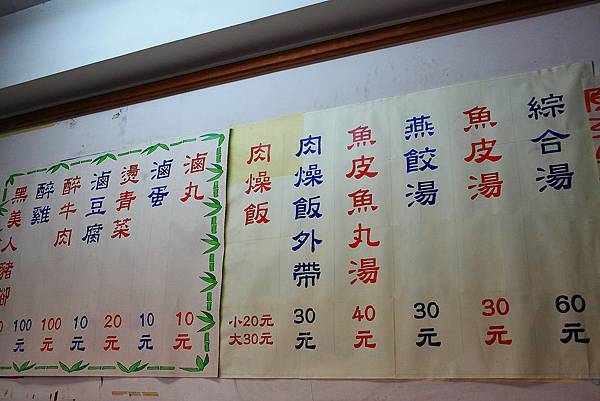 綜合湯
60元
魚皮湯
30元
燕餃湯
30元
魚皮魚丸湯
40元
肉燥飯外帶
30元
肉燥飯
小20元
大30元
滷丸
10元
滷蛋
10元
燙青菜
20元
滷豆腐
10元
醉牛肉
100元
醉雞
100元
黑美人豬腳